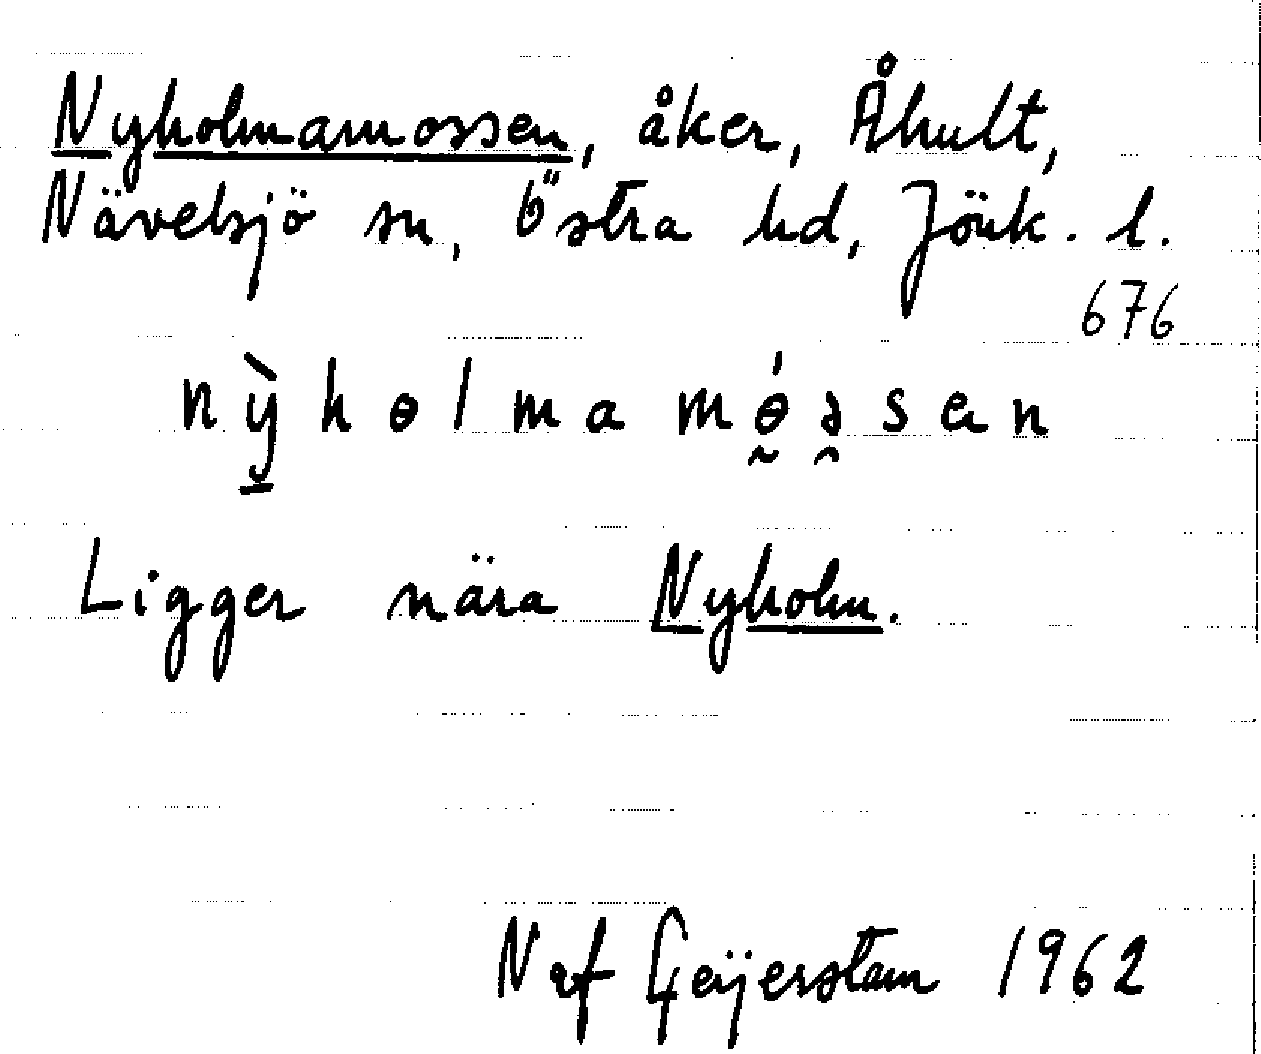 Nyholmamossen, åker, Åhult,
Nävelsjö sn, Östra hd, Jönk. l.
676
nỳholmamɵ́əsən
Ligger nära Nyholm.
N af Geijerstam 1962